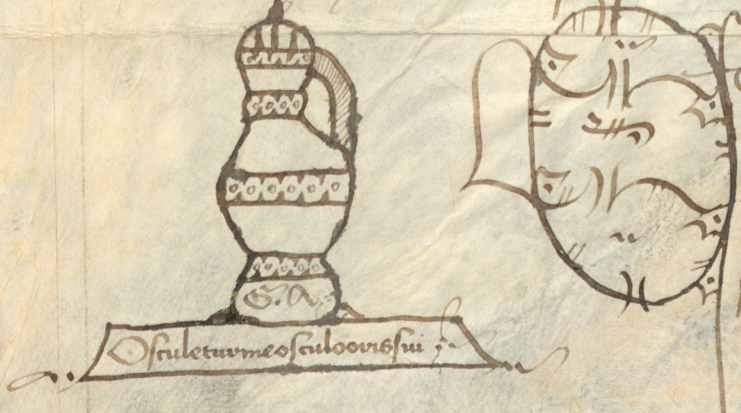 G. V.
Osculetur me osculo oris sui